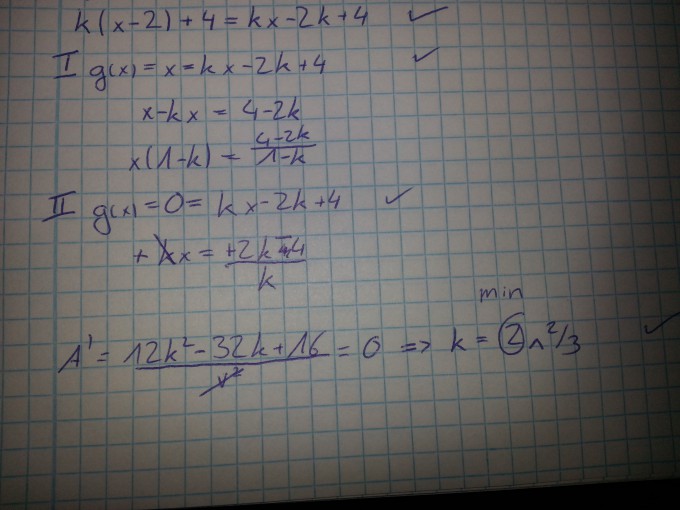 k(x-2)+4 = kx-2k+4 ✓
I g(x) = x = kx-2k+4 ✓
x-kx = 4-2k
x(1-k) = 4-2k / 1-k
II g(x) = 0 = kx-2k+4 ✓
+ kx = +2k-4 / k
min
A' = 12k²-32k+16 / = 0 => k = 2 ∧ 2/3 ✓